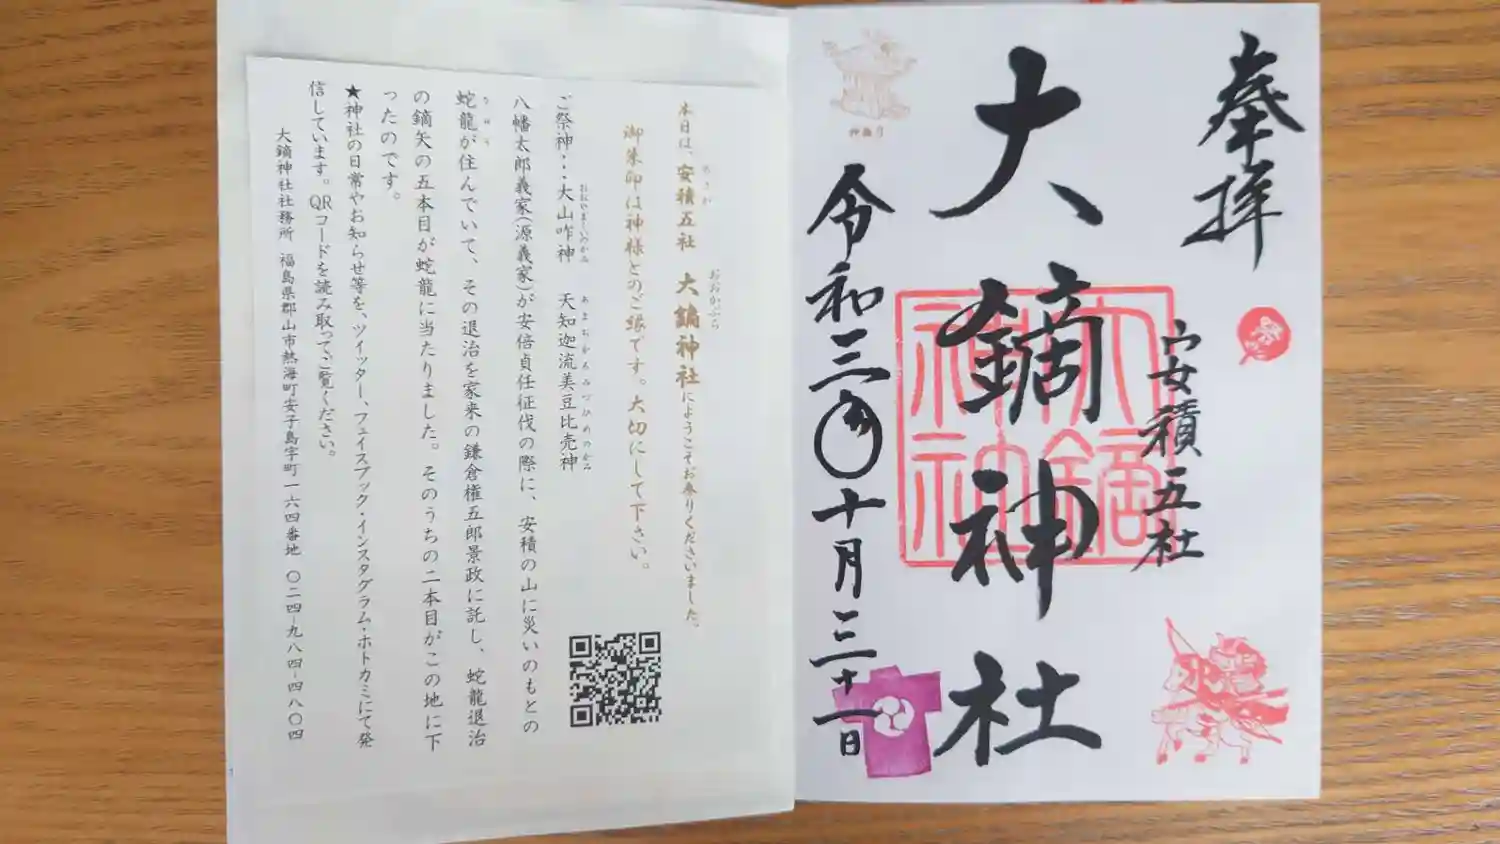 奉拝
安積五社
大鏑神社
大鏑神社
令和三年十月三十一日
神撫り
本日は、安積五社 大鏑神社にようこそお参りくださいました。
あさか
おおかぶら
御朱印は神様とのご縁です。大切にして下さい。
ご祭神…大山咋神 天知迦流美豆比売神
おおやまくいのかみ あまちかるみづひめのかみ
八幡太郎義家(源義家)が安倍貞任征伐の際に、安積の山に災いのもとの
蛇龍が住んでいて、その退治を家来の鎌倉権五郎景政に託し、蛇龍退治
の鏑矢の五本目が蛇龍に当たりました。そのうちの二本目がこの地に下
ったのです。
★神社の日常やお知らせ等を、ツイッター、フェイスブック・インスタグラム・ホトカミにて発
信しています。QRコードを読み取ってご覧ください。
大鏑神社社務所 福島県郡山市熱海町安子島字町一六四番地 〇二四-九八四-四八〇四